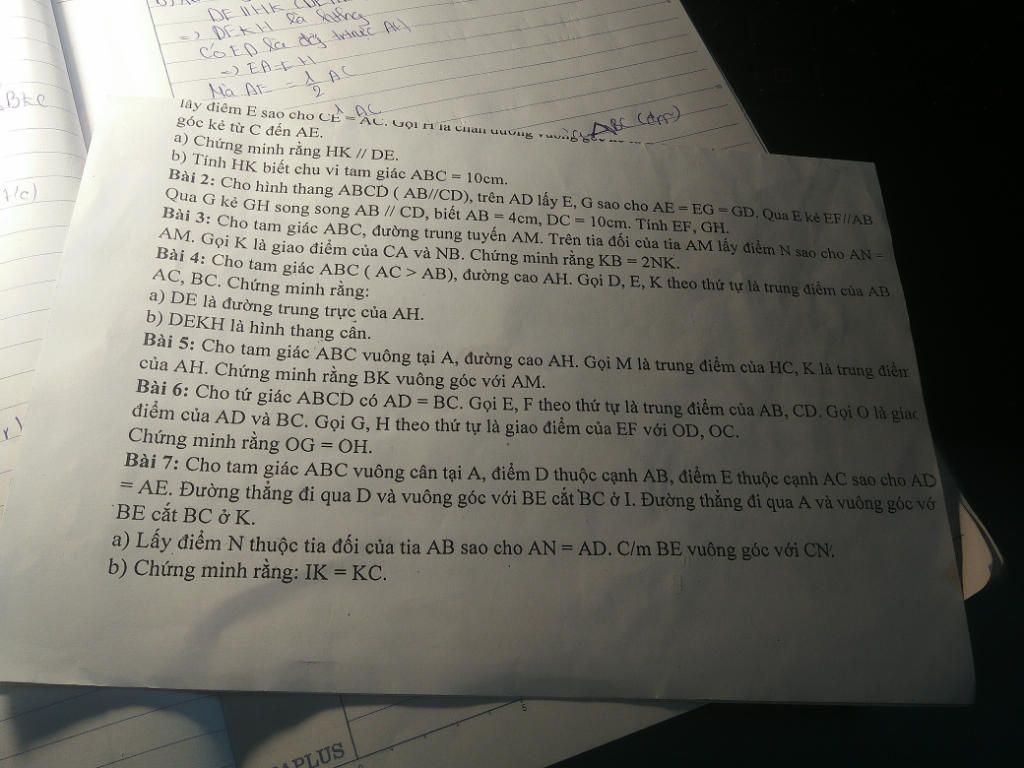 DE // HK
=> DEKH là hthang
Có ED là đg trung trực AH
=> EA = EH
Mà AE = 1/2 AC
BKC
lấy điểm E sao cho CE = AC. Gọi H là chân đường vuông góc kẻ
góc kẻ từ C đến AE.
a) Chứng minh rằng HK // DE.
b) Tính HK biết chu vi tam giác ABC = 10cm.
Bài 2: Cho hình thang ABCD ( AB//CD), trên AD lấy E, G sao cho AE = EG = GD. Qua E kẻ EF//AB
Qua G kẻ GH song song AB // CD, biết AB = 4cm, DC = 10cm. Tính EF, GH.
Bài 3: Cho tam giác ABC, đường trung tuyến AM. Trên tia đối của tia AM lấy điểm N sao cho AN =
AM. Gọi K là giao điểm của CA và NB. Chứng minh rằng KB = 2NK.
Bài 4: Cho tam giác ABC ( AC > AB), đường cao AH. Gọi D, E, K theo thứ tự là trung điểm của AB
AC, BC. Chứng minh rằng:
a) DE là đường trung trực của AH.
b) DEKH là hình thang cân.
Bài 5: Cho tam giác ABC vuông tại A, đường cao AH. Gọi M là trung điểm của HC, K là trung điểm
của AH. Chứng minh rằng BK vuông góc với AM.
Bài 6: Cho tứ giác ABCD có AD = BC. Gọi E, F theo thứ tự là trung điểm của AB, CD. Gọi O là giao
điểm của AD và BC. Gọi G, H theo thứ tự là giao điểm của EF với OD, OC.
Chứng minh rằng OG = OH.
Bài 7: Cho tam giác ABC vuông cân tại A, điểm D thuộc cạnh AB, điểm E thuộc cạnh AC sao cho AD
= AE. Đường thẳng đi qua D và vuông góc với BE cắt BC ở I. Đường thẳng đi qua A và vuông góc với
BE cắt BC ở K.
a) Lấy điểm N thuộc tia đối của tia AB sao cho AN = AD. C/m BE vuông góc với CN.
b) Chứng minh rằng: IK = KC.
APLUS
5